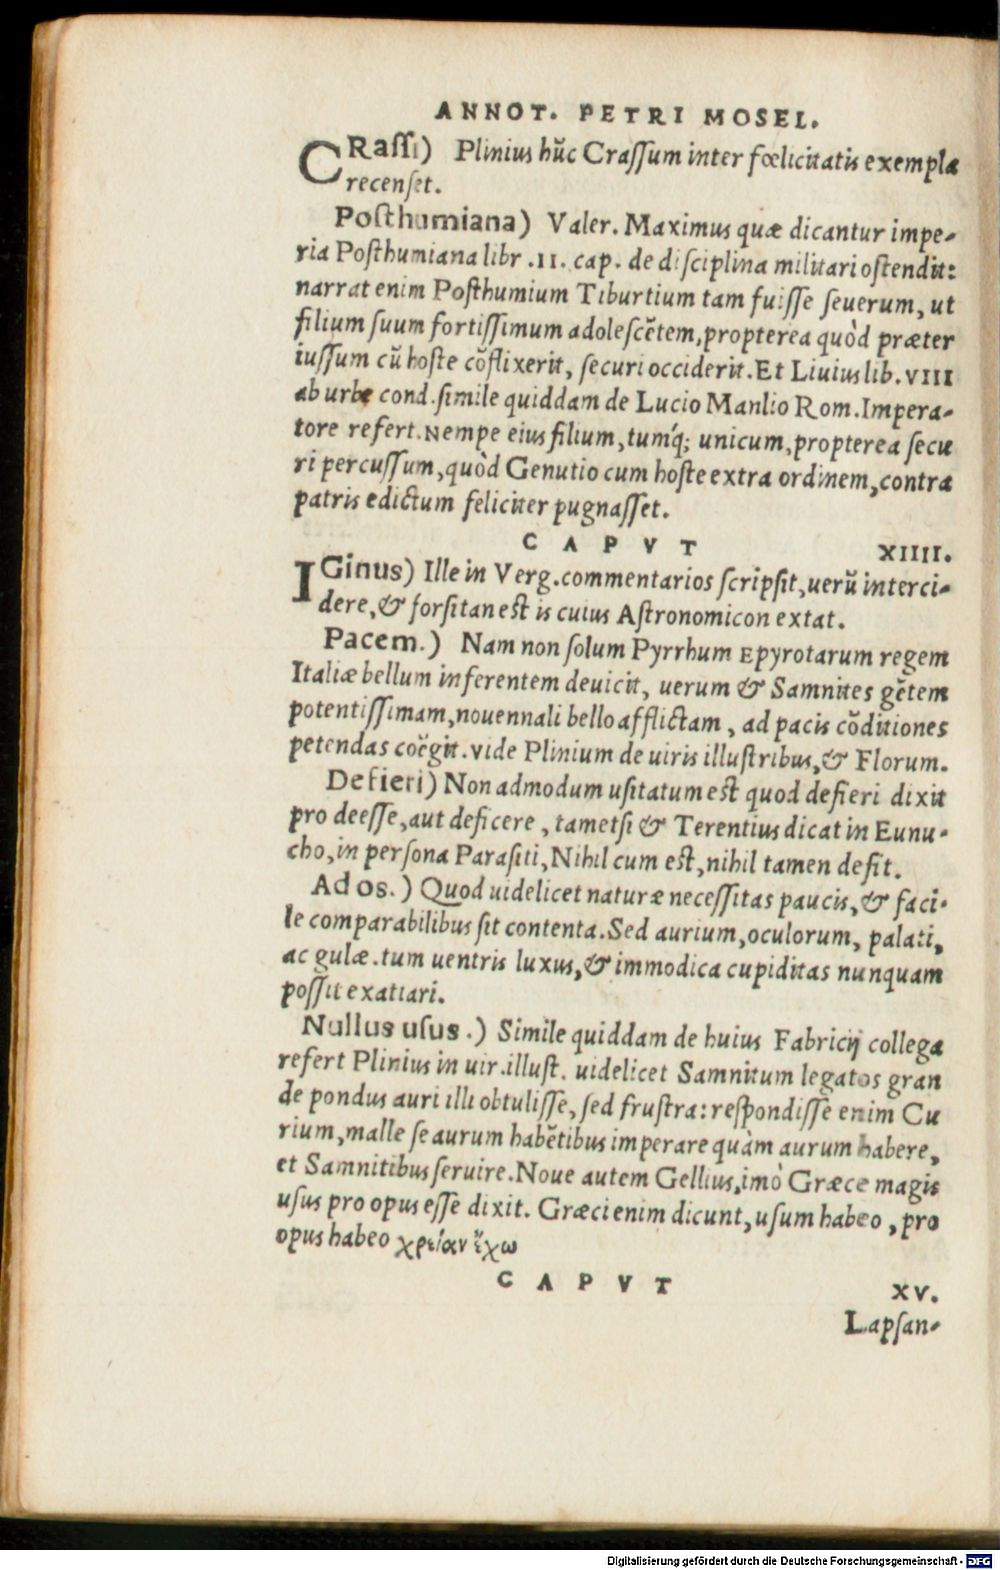 ANNOT. PETRI MOSEL.
CRaſſi) Plinius hũc Craſſum inter fœlicitatis exempla
recenſet.
Poſthumiana) Valer. Maximus quæ dicantur impe-
ria Poſthumiana libr .II. cap. de diſciplina militari oſtendit:
narrat enim Poſthumium Tiburtium tam fuiſſe ſeuerum, ut
filium ſuum fortiſſimum adoleſcẽtem, propterea quòd præter
iuſſum cũ hoſte cõflixerit, ſecuri occiderit. Et Liuius lib. VIII
ab urbe cond. ſimile quiddam de Lucio Manlio Rom. Impera-
tore refert. Nempe eius filium, tumq́; unicum, propterea ſecu
ri percuſſum, quòd Genutio cum hoſte extra ordinem, contra
patris edictum feliciter pugnaſſet.
CAPVT XIIII.
IGinus) Ille in Verg. commentarios ſcripſit, uerũ interci-
dere, & forſitan eſt is cuius Aſtronomicon extat.
Pacem.) Nam non ſolum Pyrrhum Epyrotarum regem
Italiæ bellum inferentem deuicit, uerum & Samnites gẽtem
potentiſſimam, nouennali bello afflictam, ad pacis cõditiones
petendas coëgit. vide Plinium de uiris illuſtribus, & Florum.
Defieri) Non admodum uſitatum eſt quod defieri dixit
pro deeſſe, aut deficere, tametſi & Terentius dicat in Eunu-
cho, in perſona Paraſiti, Nihil cum eſt, nihil tamen defit.
Ad os.) Quod uidelicet naturæ neceſſitas paucis, & faci-
le comparabilibus ſit contenta. Sed aurium, oculorum, palati,
ac gulæ. tum uentris luxus, & immodica cupiditas nunquam
poſſit exatiari.
Nullus uſus.) Simile quiddam de huius Fabricij collega
refert Plinius in uir. illuſt. uidelicet Samnitum legatos gran
de pondus auri illi obtuliſſe, ſed fruſtra: reſpondiſſe enim Cu
rium, malle ſe aurum habẽtibus imperare quàm aurum habere,
et Samnitibus ſeruire. Noue autem Gellius, imò Græce magis
uſus pro opus eſſe dixit. Græci enim dicunt, uſum habeo, pro
opus habeo χρείαν ἔχω
CAPVT XV.
Lapſan-
Digitalisierung gefördert durch die Deutsche Forschungsgemeinschaft - DFG